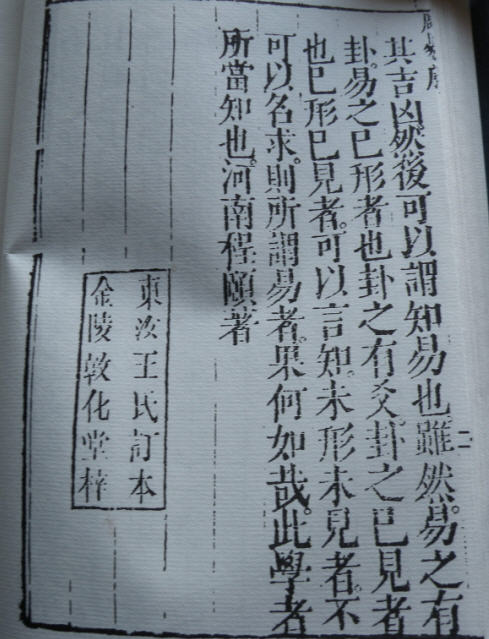 周易序
其吉凶然後可以謂知易也雖然易之有
卦。易之已形者也卦之有爻卦之已見者
也已形已見者。可以言知。未形未見者。不
可以名求。則所謂易者。果何如哉。此學者
所當知也。河南程頤著
二
東汝王氏訂本
金陵敦化堂梓